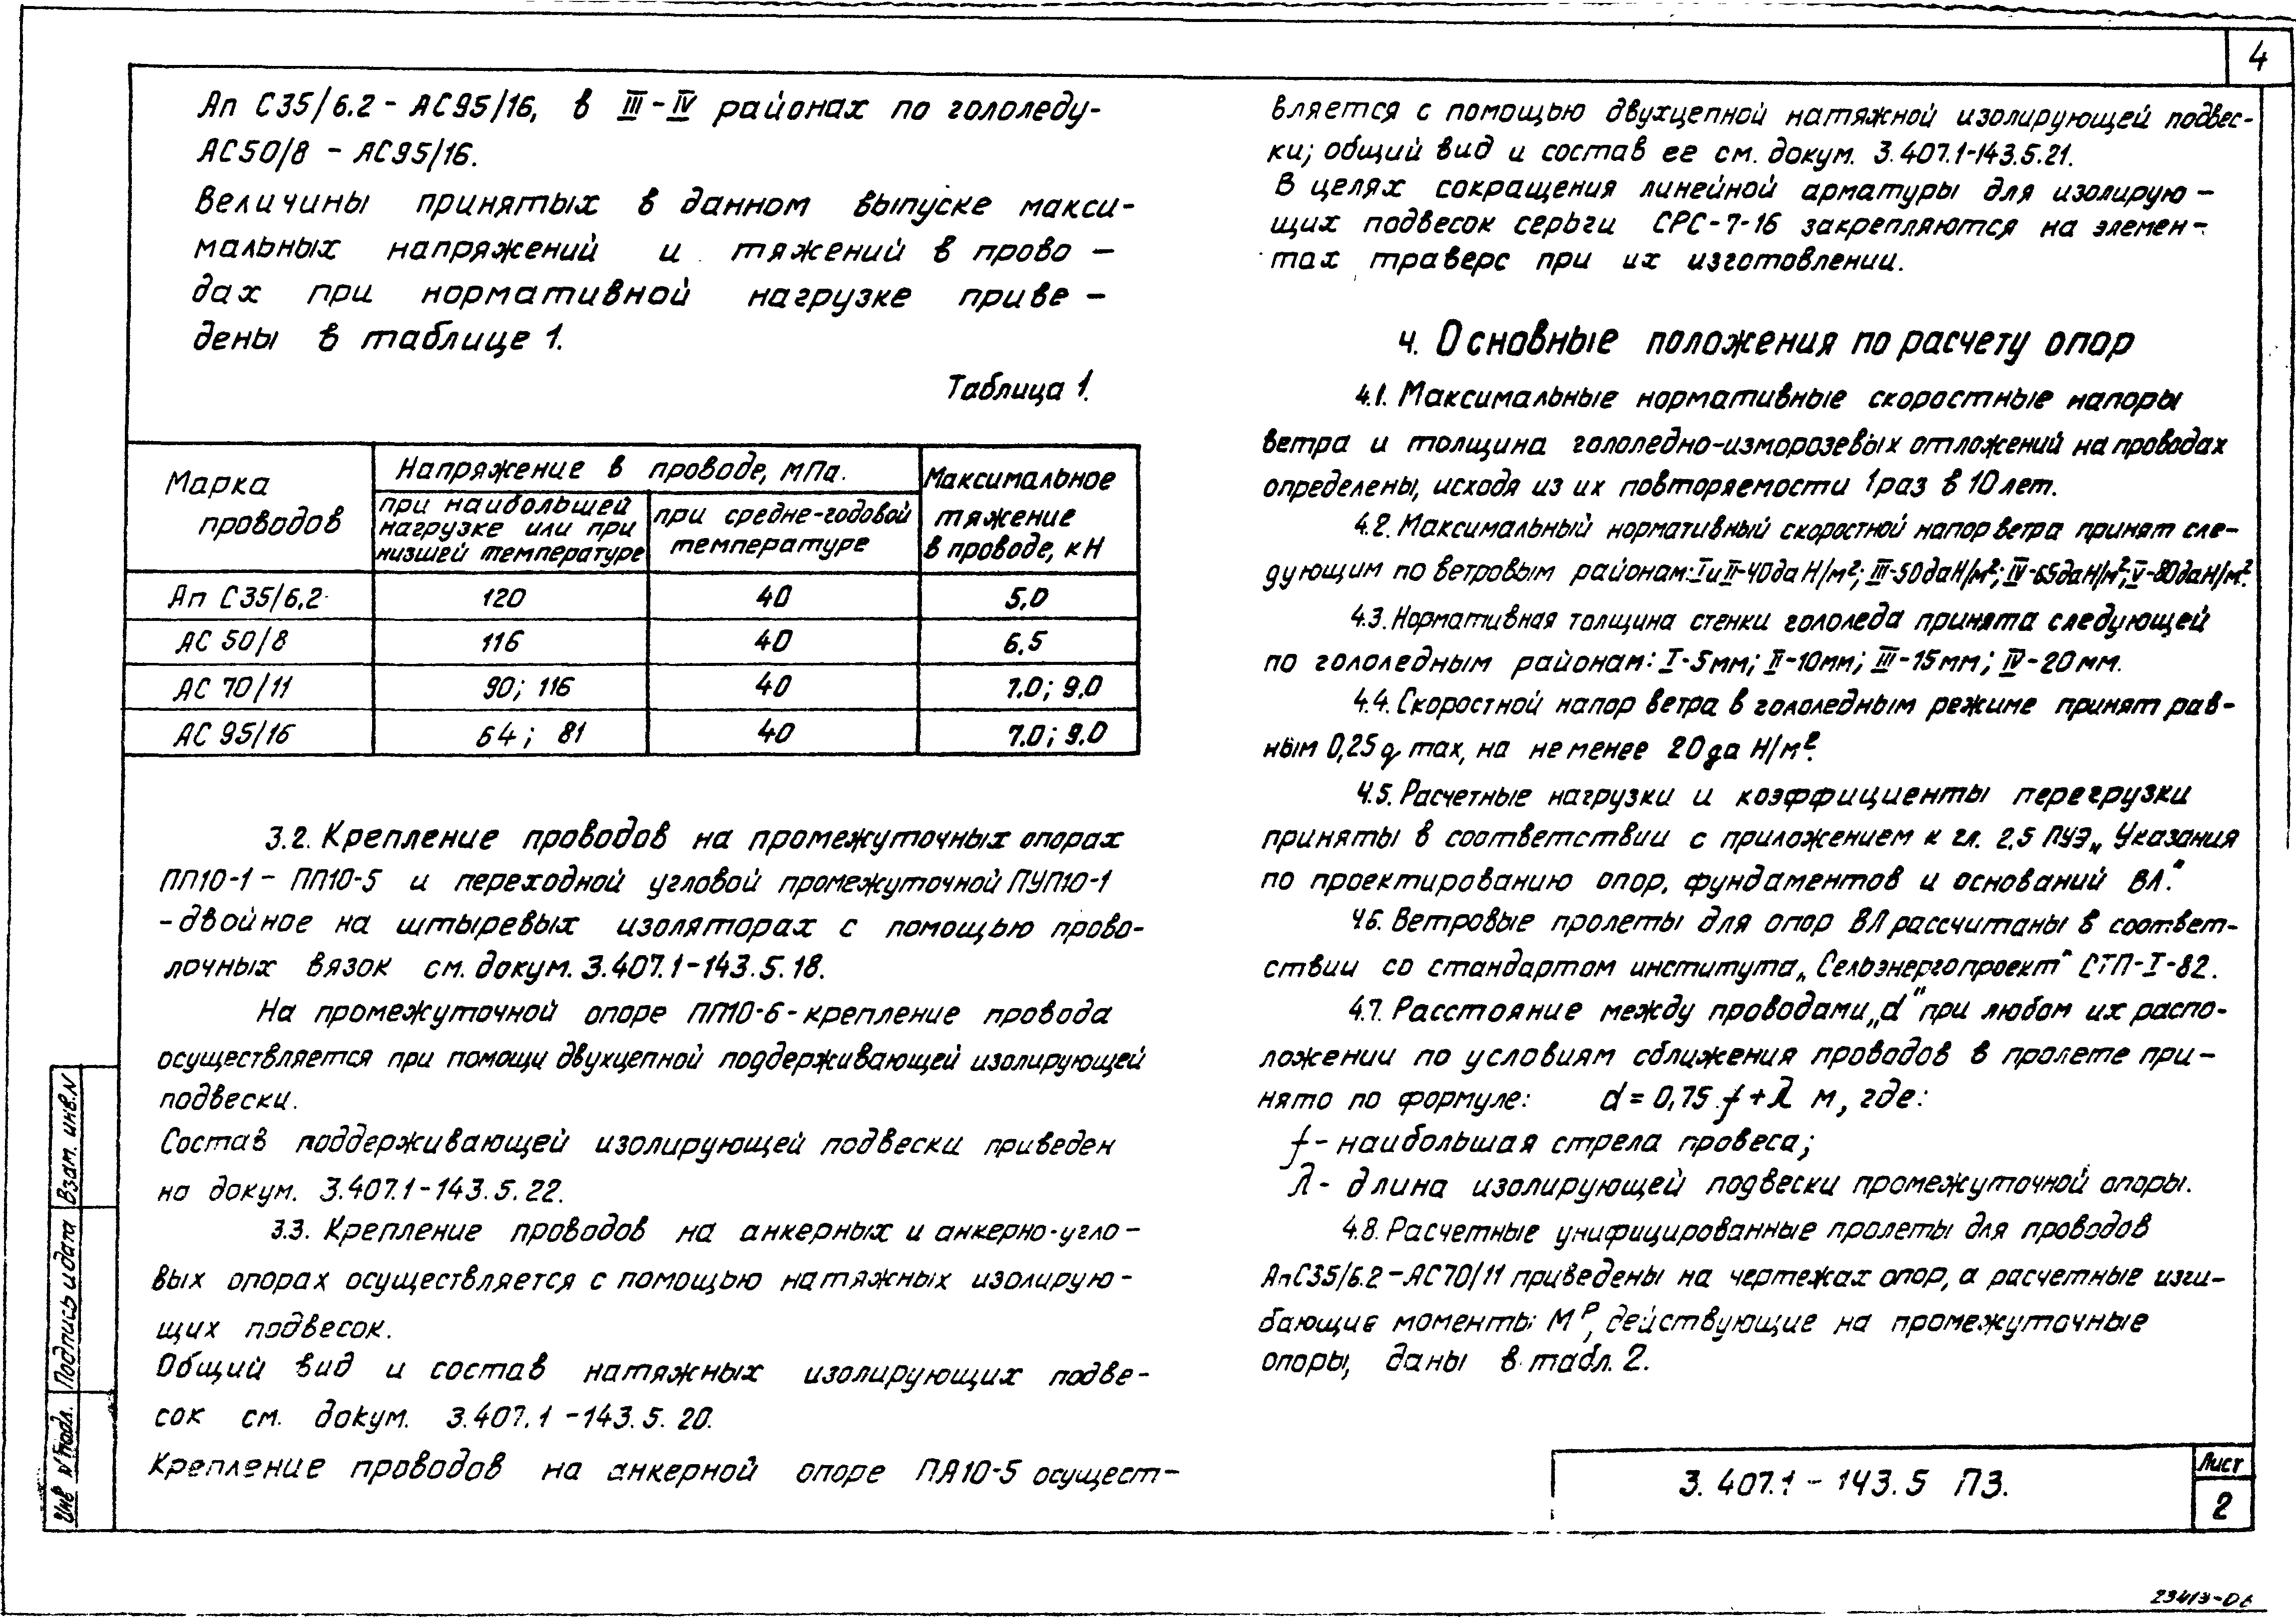 4
Ап С35/6.2 – АС95/16, в III–IV районах по гололеду-
АС50/8 – АС95/16.
Величины принятых в данном выпуске макси-
мальных напряжений и тяжений в прово-
дах при нормативной нагрузке приве-
дены в таблице 1.
Таблица 1.
Марка проводов
Напряжение в проводе, МПа.
при наибольшей нагрузке или при низшей температуре
при средне-годовой температуре
Максимальное тяжение в проводе, кН
Ап С35/6.2 120 40 5,0
АС 50/8 116 40 6,5
АС 70/11 90; 116 40 7.0; 9.0
АС 95/16 64; 81 40 7.0; 9.0
3.2. Крепление проводов на промежуточных опорах
ПП10-1 – ПП10-5 и переходной угловой промежуточной ПУП10-1
-двойное на штыревых изоляторах с помощью прово-
лочных вязок см. докум. 3.407.1-143.5.18.
На промежуточной опоре ПП10-6-крепление провода
осуществляется при помощи двухцепной поддерживающей изолирующей
подвески.
Состав поддерживающей изолирующей подвески приведен
на докум. 3.407.1-143.5.22.
3.3. Крепление проводов на анкерных и анкерно-угло-
вых опорах осуществляется с помощью натяжных изолирую-
щих подвесок.
Общий вид и состав натяжных изолирующих подве-
сок см. докум. 3.407.1-143.5.20.
Крепление проводов на анкерной опоре ПА10-5 осущест-
вляется с помощью двухцепной натяжной изолирующей подвес-
ки; общий вид и состав ее см. докум. 3.407.1-143.5.21.
В целях сокращения линейной арматуры для изолирую-
щих подвесок серьги СРС-7-16 закрепляются на элемен-
тах траверс при их изготовлении.
4. Основные положения по расчету опор
4.1. Максимальные нормативные скоростные напоры
ветра и толщина гололедно-изморозевых отложений на проводах
определены, исходя из их повторяемости 1 раз в 10 лет.
4.2. Максимальный нормативный скоростной напор ветра принят сле-
дующим по ветровым районам: I и II-40 да Н/м²; III-50 даН/м²; IV-65 даН/м²; V-80 даН/м².
4.3. Нормативная толщина стенки гололеда принята следующей
по гололедным районам: I-5мм; II-10мм; III-15мм; IV-20мм.
4.4. Скоростной напор ветра в гололедным режиме принят рав-
ным 0,25 q max, на не менее 20 да Н/м².
4.5. Расчетные нагрузки и коэффициенты перегрузки
приняты в соответствии с приложением к гл. 2.5 ПУЭ „Указания
по проектированию опор, фундаментов и оснований ВЛ."
4.6. Ветровые пролеты для опор ВЛ рассчитаны в соответ-
ствии со стандартом института „Сельэнергопроект" СТП-I-82.
4.7. Расстояние между проводами „d" при любом их распо-
ложении по условиям сближения проводов в пролете при-
нято по формуле: d = 0,75 f + λ м, где:
f- наибольшая стрела провеса;
λ- длина изолирующей подвески промежуточной опоры.
4.8. Расчетные унифицированные пролеты для проводов
АпС35/6.2-АС70/11 приведены на чертежах опор, а расчетные изги-
бающие моменты М^р, действующие на промежуточные
опоры, даны в табл. 2.
Инв № подл. Подпись и дата Взам. инв. N
3.407.1-143.5 ПЗ.
Лист
2